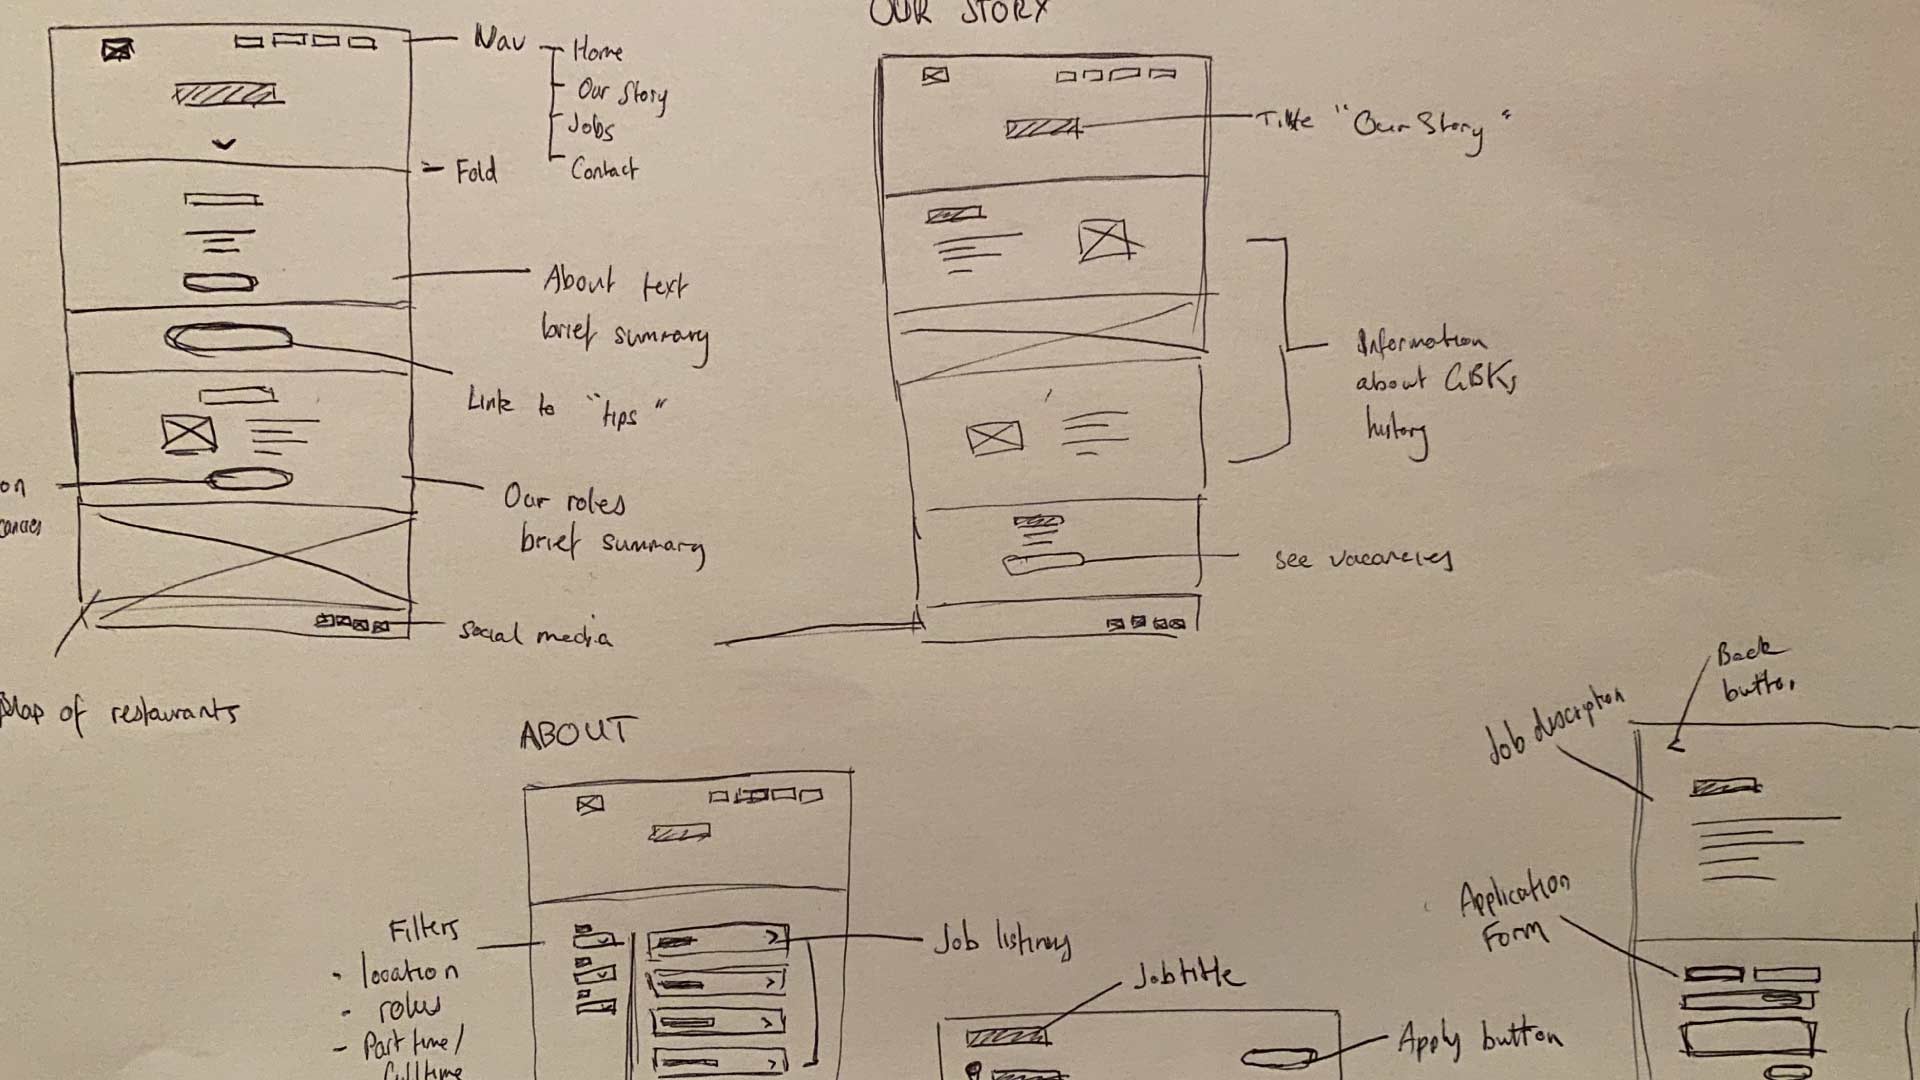 OUR STORY
Nav
Home
Our Story
Jobs
Contact
Fold
About text
brief summary
Link to "tips"
on
Our roles
brief summary
Social media
Map of restaurants
Title "Our Story"
Information
about GBKs
history
see vacancies
ABOUT
Filters
- location
- roles
- Part time/
Full time
Job listings
Job title
Apply button
Back
button
Job description
Application
Form